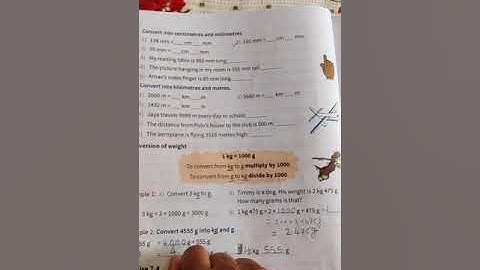 Convert into centimetres and millimetres.
134 mm = ___ cm ___ mm
mm = ___ cm ___ mm
95 mm = ___ cm ___ mm
My reading table is 850 mm long.
The picture hanging in my room is 555 mm tall.
Arman's index finger is 65 mm long.
Convert into kilometres and metres.
2600 m = ___ km ___ m
5680 m = ___ km ___ m
2432 m = ___ km ___ m
Jaya travels m every day to school.
The distance from Polo's house to the club is 500 m
The aeroplane is flying 3515 metres high.
version of weight
1 kg = 1000 g
To convert from kg to g multiply by 1000
To convert from g to kg divide by 1000
ple 1: a) Convert 3 kg to g.
Timmy is a dog. His weight is 2 kg 475 g
How many grams is that?
3 kg = 3 × 1000 g = 3000 g
2 kg 475 g = 2 × 1000 g + 475 g
= 2475 g
ple 2: Convert 4555 g into kg and g.
55 g = 4000 g + 555 g
kg 555 g